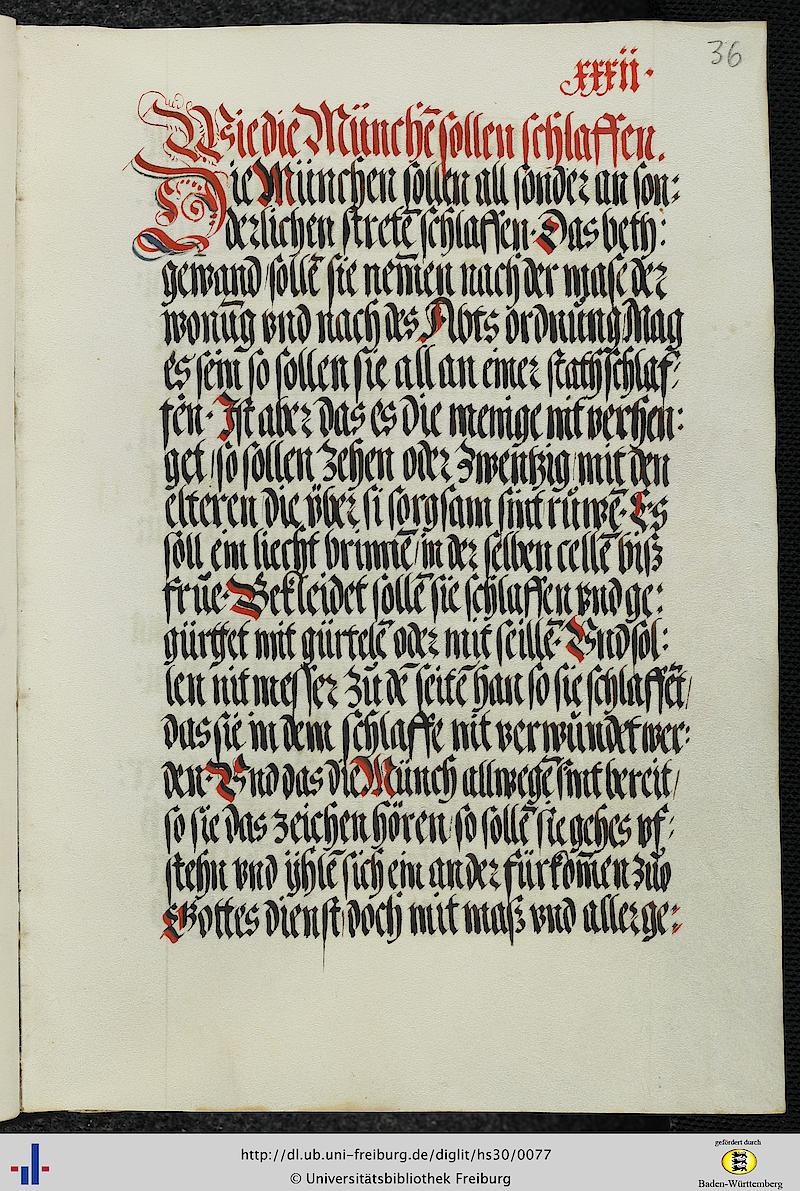 36
xxxii.
Wie die Münchē sollen schlaffen.
Die München sollen all sonder an son:
derlichen stretē schlaffen. Das beth:
gewand / sollē sie nem̄en nach der mase der
wonūg vnd nach des Abts ordnung / Mag
es sein so sollen sie all an einer stath schlaf:
fen. Ist aber das es die menige nit verhen:
get / so sollen zehen oder zwentzig / mit den
elteren die über si sorgsam sint rüwē. Es
soll ein liecht brinnē / in der selben cellē biß
früe. Bekleidet sollē sie schlaffen vnd ge:
gürttet mit gürtelē oder mit seillē. Vnd sol:
len nit messer zu dē seitē han so sie schlaffēt /
das sie in dem schlaffe nit verwundet wer:
den. Vnd das die Münch allwegē sint bereit /
so sie das zeichen hören / so sollē sie gehes vf:
stehn vnd ÿhlē sich ein ander fürkom̄en zuo
Gottes dienst / doch mit maß vnd aller ge:
http://dl.ub.uni-freiburg.de/diglit/hs30/0077
© Universitätsbibliothek Freiburg
gefördert durch
Baden-Württemberg